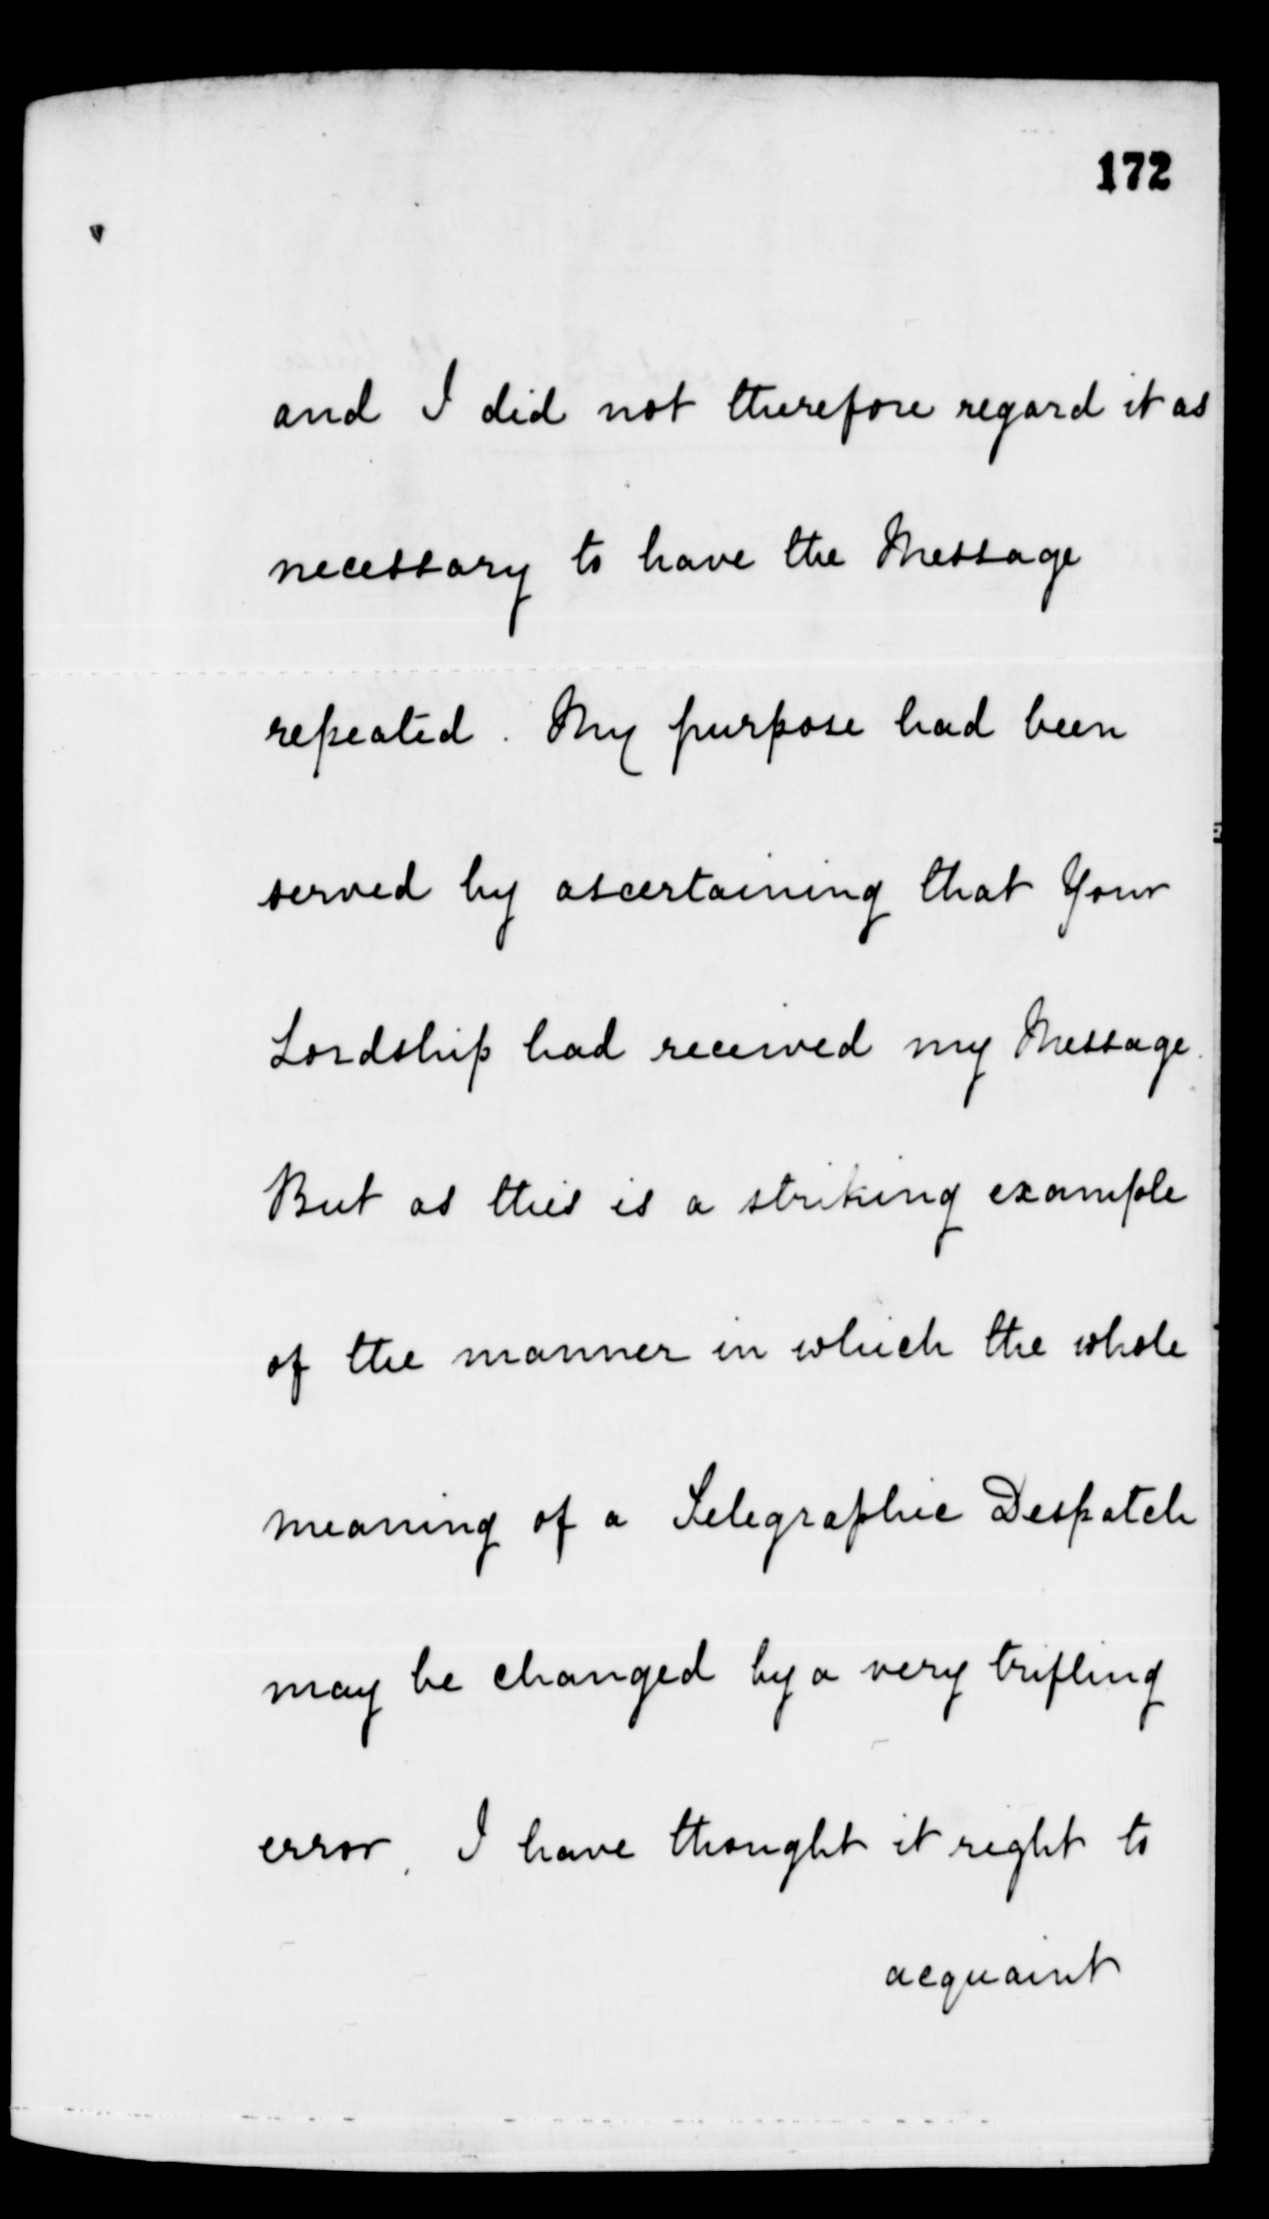 172
and I did not therefore regard it as
necessary to have the Message
repeated. My purpose had been
served by ascertaining that Your
Lordship had received my Message.
But as this is a striking example
of the manner in which the whole
meaning of a Telegraphic Despatch
may be changed by a very trifling
error, I have thought it right to
acquaint